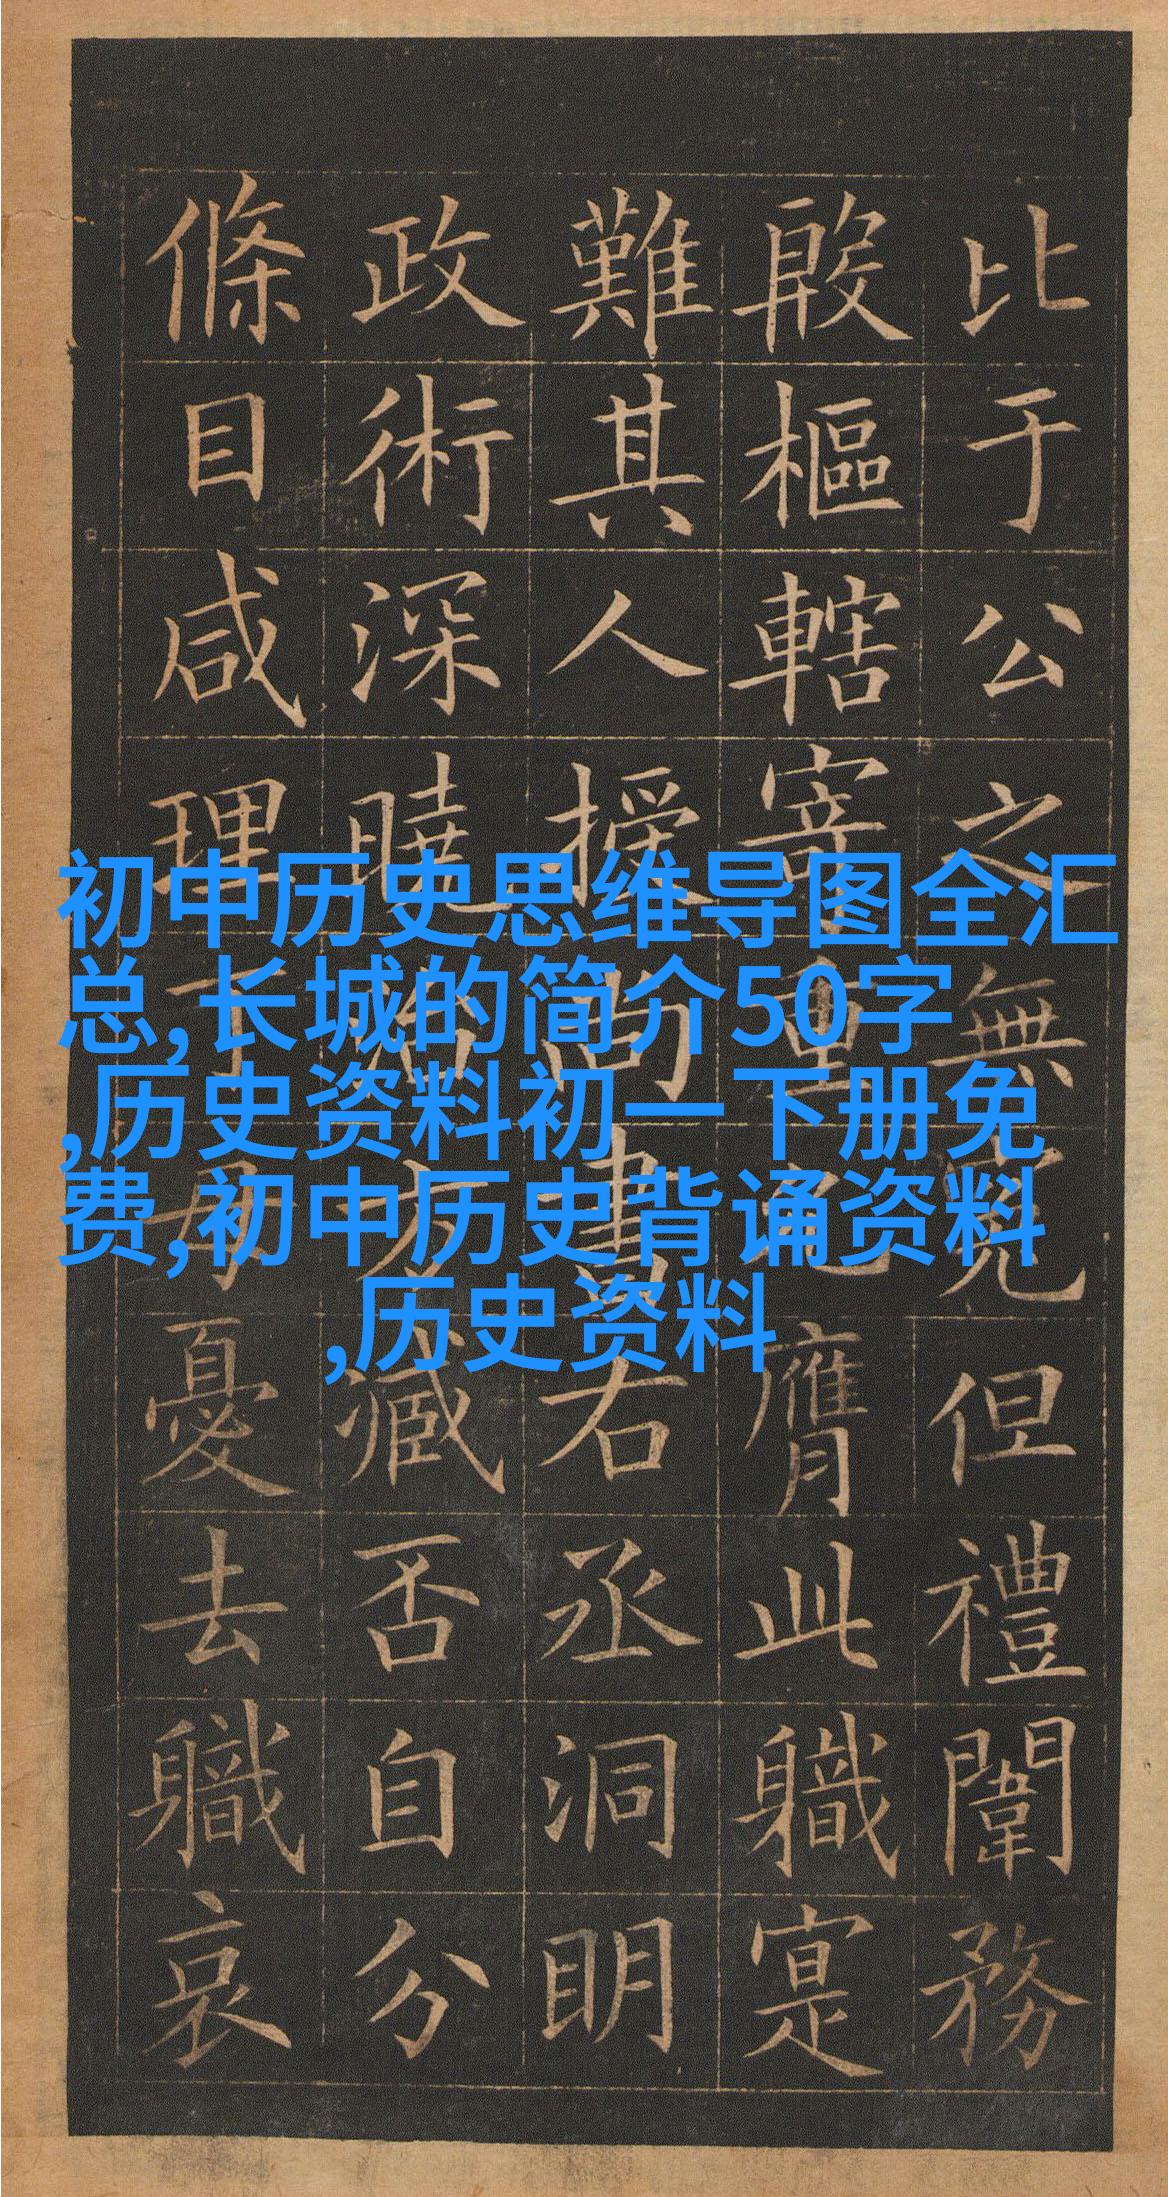 初中历史思维导图全汇
总,长城的简介50字
,历史资料初一下册免
费,初中历史背诵资料
,历史资料
比于公之無冤但禮闈務
殷樞轄寄重允膺此職寔
難其人授尚書右丞洞明
政術深曉治方臧否自分
條目咸理丁母憂去職哀